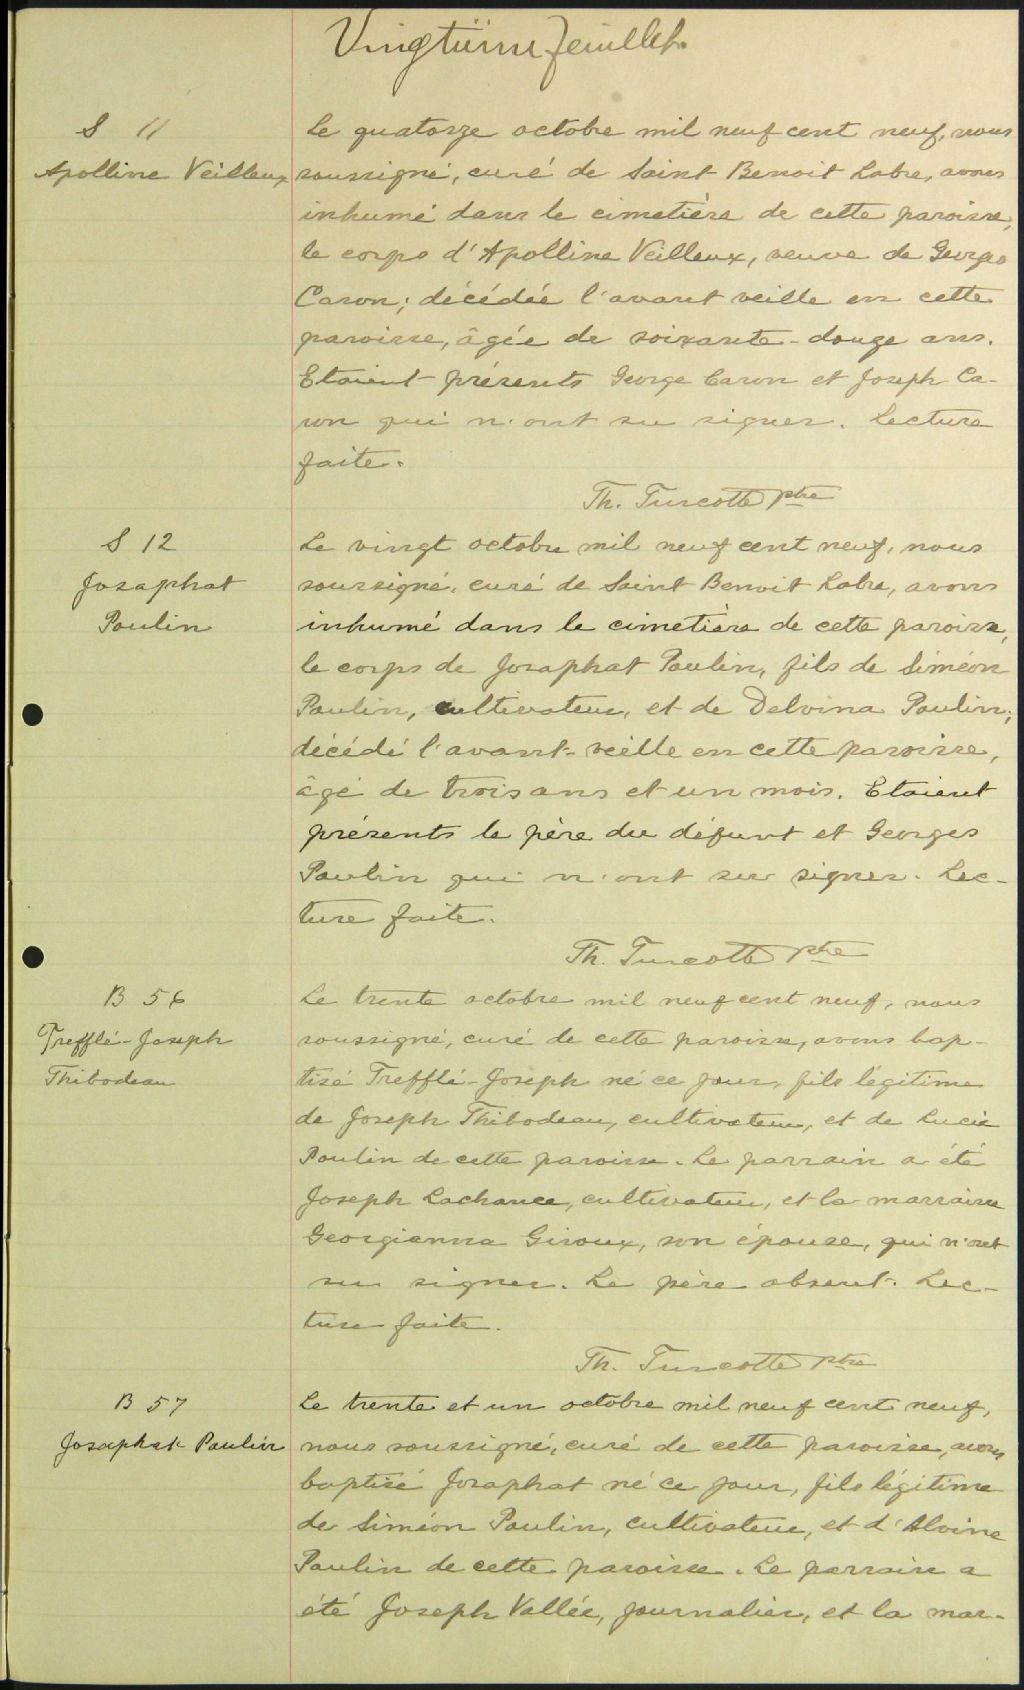 Vingtième feuillet.
S 11
Apolline Veilleux
Le quatorze octobre mil neuf cent neuf, nous
soussigné, curé de Saint Benoit Labre, avons
inhumé dans le cimetière de cette paroisse,
le corps d'Apolline Veilleux, veuve de Georges
Caron; décédée l'avant veille en cette
paroisse, âgée de soixante-douze ans.
Etaient présents George Caron et Joseph Ca-
ron qui n'ont su signer. Lecture
faite.
Th. Turcotte ptre
S 12
Josaphat
Poulin
Le vingt octobre mil neuf cent neuf, nous
soussigné, curé de Saint Benoit Labre, avons
inhumé dans le cimetière de cette paroisse,
le corps de Josaphat Poulin, fils de Siméon
Poulin, cultivateur, et de Delvina Poulin;
décédé l'avant-veille en cette paroisse,
âgé de trois ans et un mois. Etaient
présents le père du défunt et Georges
Poulin qui n'ont su signer. Lec-
ture faite.
Th. Turcotte ptre
B 56
Trefflé-Joseph
Thibodeau
Le trente octobre mil neuf cent neuf, nous
soussigné, curé de cette paroisse, avons bap-
tisé Trefflé-Joseph né ce jour, fils légitime
de Joseph Thibodeau, cultivateur, et de Lucie
Poulin de cette paroisse. Le parrain a été
Joseph Lachance, cultivateur, et la marraine
Georgianna Giroux, son épouse, qui n'ont
su signer. Le père absent. Lec-
ture faite.
Th. Turcotte ptre
B 57
Josaphat Poulin
Le trente et un octobre mil neuf cent neuf,
nous soussigné, curé de cette paroisse, avons
baptisé Josaphat né ce jour, fils légitime
de Siméon Poulin, cultivateur, et d'Alvine
Poulin de cette paroisse. Le parrain a
été Joseph Vallée, journalier, et la mar-